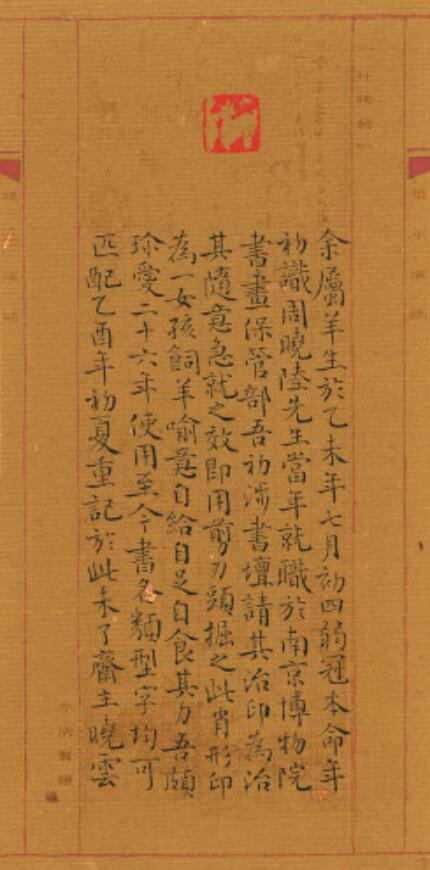 余屬羊生於乙未年七月初四弱冠本命年
初識周曉陸先生當年就職於南京博物院
書畫保管部吾初涉書壇請其治印為治
其隨意急就之效即用剪刀頭掘之此肖形印
為一女孩飼羊喻意自給自足自食其力吾頗
珍愛二十六年使用至今書各類型字均可
匹配乙酉年初夏重記於此未了齋主曉雲